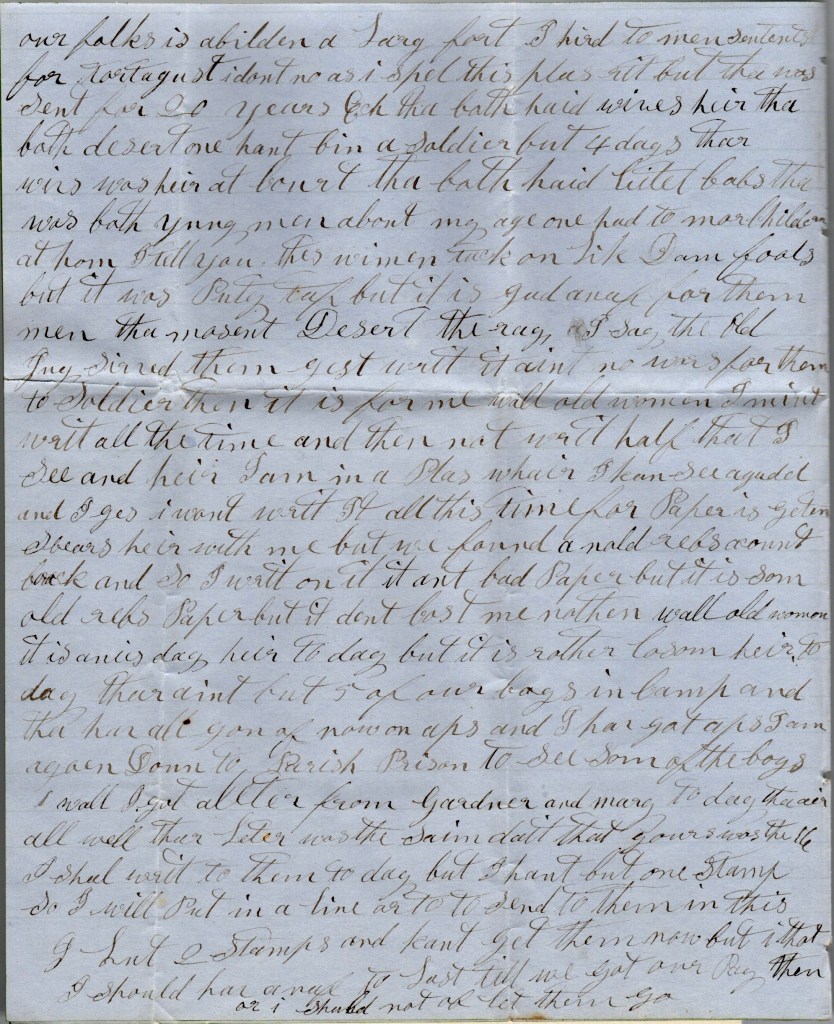 our folks is abilden a Larg fort I hird to men sentents
for tortagust i dont no as i spel this plas rit but tha was
sent for 20 years Ech tha both haid wives heir tha
both desert one hant bin a soldier but 4 days thar
wivs was heir at Court tha both haid litel babs tha
was both yung men about my age one had to mor Children
at hom I tell you thes wimen tuck on Lik Dam fools
but it was Puty tuf but it is gud anuf for them
men tha mosent Desert the rag, I say, the Old
Jug sirved them gest writ it aint no wors for them
to soldier then it is for me wall old women I mint
writ all the time and then not writ half that I
See and heir I am in a Plas whair I kan see agudel
and I ges i wont writ It all this time for Paper is geten
skears heir with me but we found a nold rebs acount
book and so I writ on it it ant bad Paper but it is som
old rebs Paper but it dont cost me nothen wall old womon
it is a nis day heir to day but it is rother losom heir to
day thar aint but 5 of our boys in Camp and
tha har all gon of now on aps and I har got aps I am
agoen Down to Parish Prison to see som of the boys
wall I got a leter from Gardner and mary to day tha air
all well thar Leter was the saim datt that yours was the 16
I shal writ to them to day but I hant but one Stamp
So I will Put in a line or to to send to them in this
I Lnt 2 Stamps and kant get them now but i thot
I should har anuf to Last till we got our Pay then
or i should not of let them go